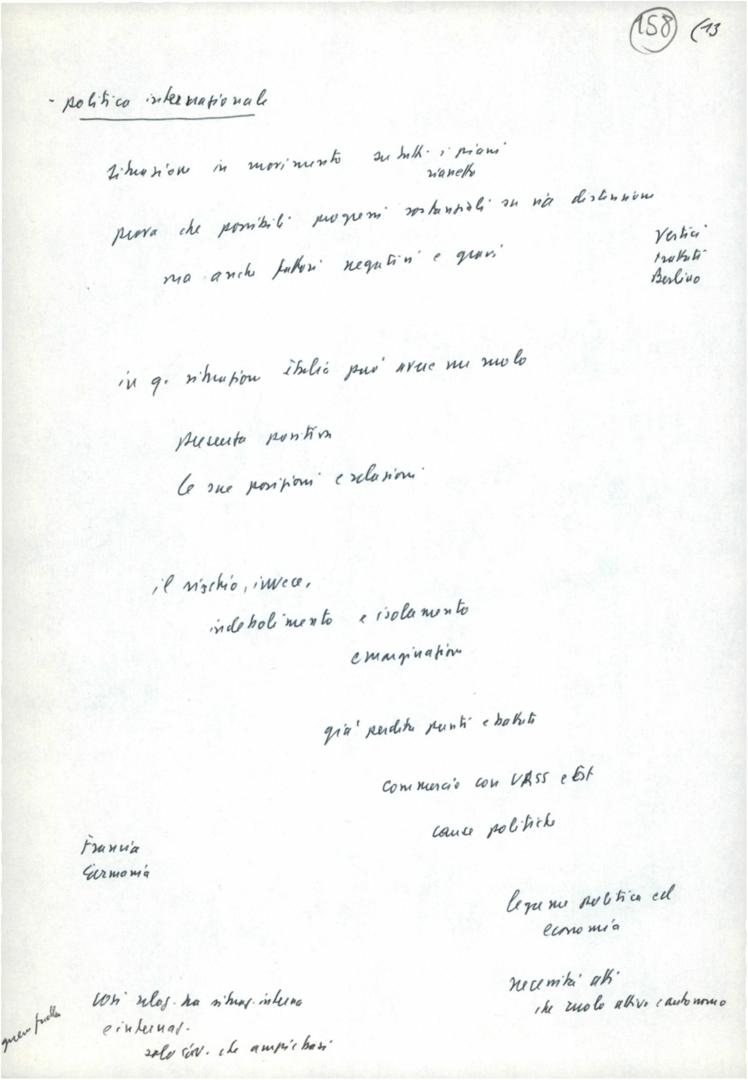 158 (13
- politica internazionale
situazione in movimento su tutti i piani
prova che possibili progressi sostanziali su via distensione
ma anche fattori negativi e gravi
Vertici
trattati
Berlino
in q. situazione Italia può avere un ruolo
presenza positiva
le sue posizioni e relazioni
il rischio, invece,
indebolimento e isolamento
emarginazione
già perdita punti e battute
commercio con URSS e Est
cause politiche
Francia
Germania
legame politica ed
economia
necessità atti
che ruolo attivo e autonomo
così relaz. tra situaz. interna
e internaz.
solo gov. che ampie basi